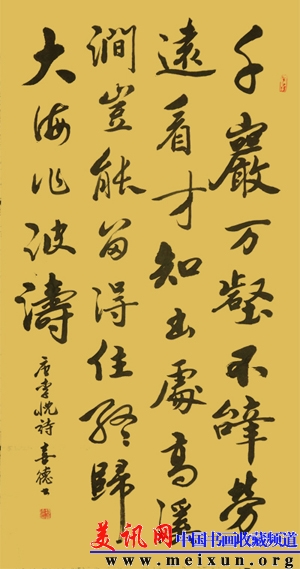 千巖万壑不辭勞
遠看才知出處高溪
澗豈能留得住終歸
大海作波濤
唐李忱诗 喜德书
美讯网 中国书画收藏频道
www.meixun.org